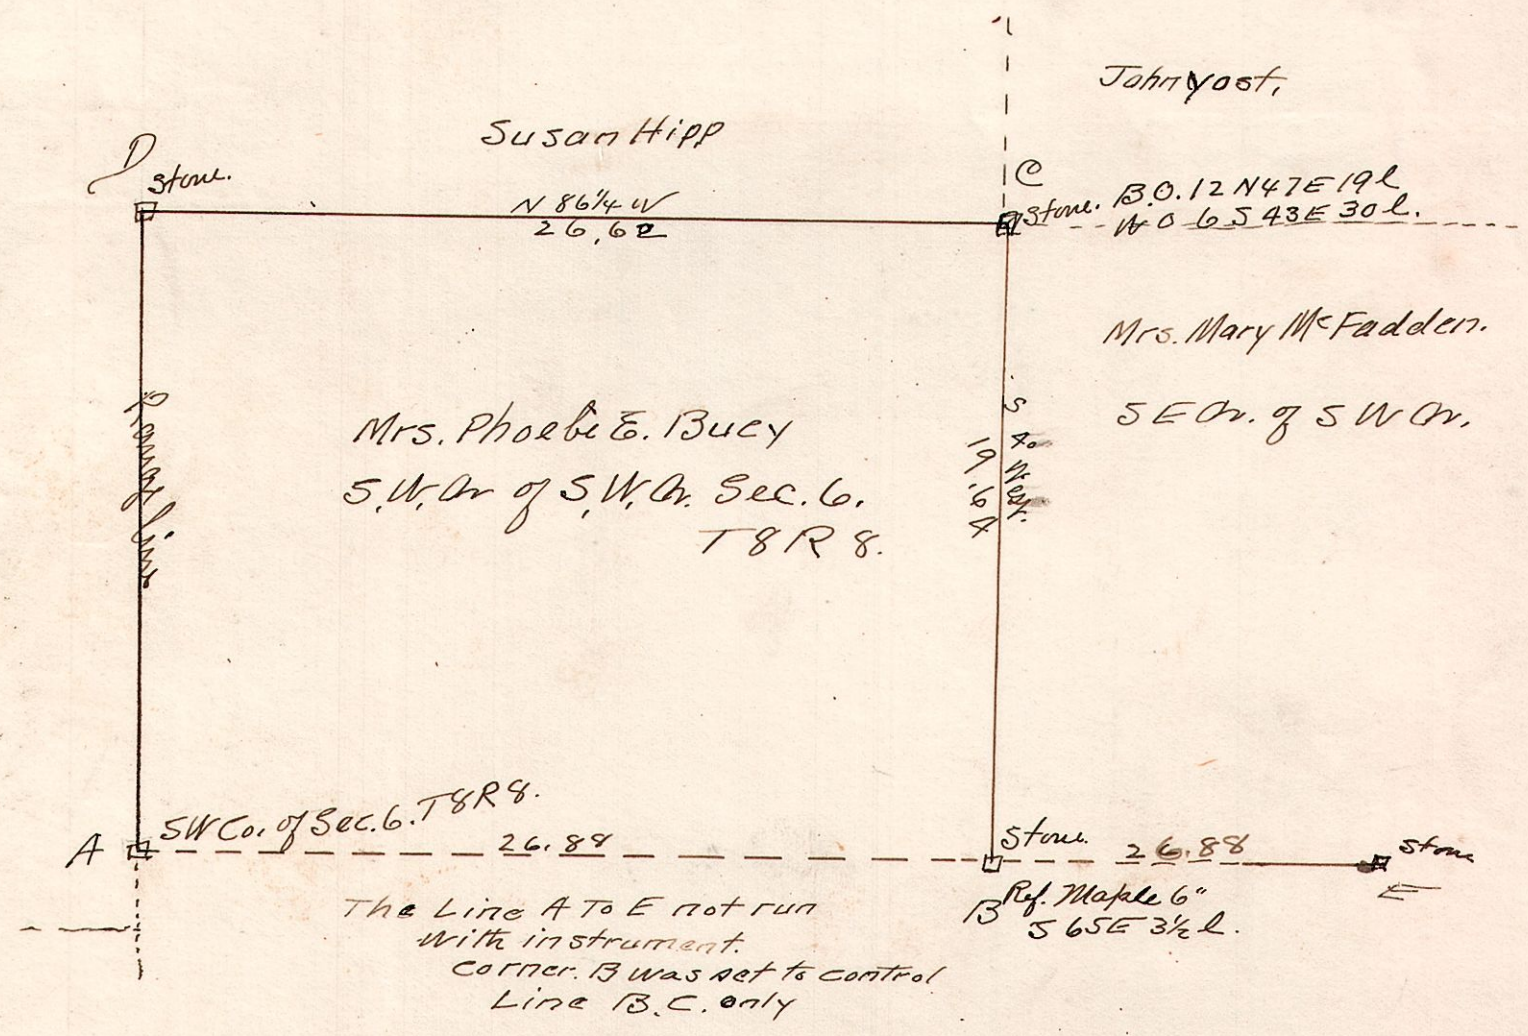 John Yost,
Susan Hipp
D
stone.
C
stone. B.O. 12 N47E 19 l
W O 6 S 43 E 30 l.
N 86 1/4 W
26.62
Mrs. Mary McFadden.
S E Qr. of S W Qr.
Range line
S 4° West.
19.64
Mrs. Phoebe E. Bucy
S.W. Qr of S.W. Qr. Sec. 6.
T 8 R 8.
A
SW Co. of Sec. 6. T8R8.
26.88
Stone.
26.88
Stone
E
B
Ref. Maple 6"
S 65E 3½ l.
The Line A To E not run
with instrument.
Corner. B was set to control
Line B.C. only